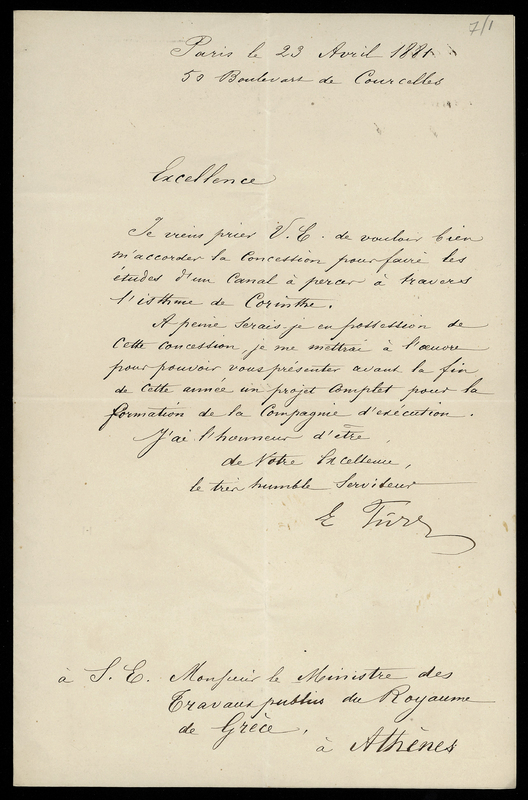 7/1
Paris le 23 Avril 1881
50 Boulevart de Courcelles
Excellence
Je viens prier V. E. de vouloir bien
m'accorder la concession pour faire les
études d'un Canal à percer à travers
l'isthme de Corinthe.
A peine serais-je en possession de
cette concession, je me mettrai à l'œuvre
pour pouvoir vous présenter avant la fin
de cette année un projet complet pour la
formation de la Compagnie d'exécution.
J'ai l'honneur d'être
de Votre Excellence,
le très humble serviteur
E Türr
à S. E. Monsieur le Ministre des
Travaux publics du Royaume
de Grèce,
à Athènes